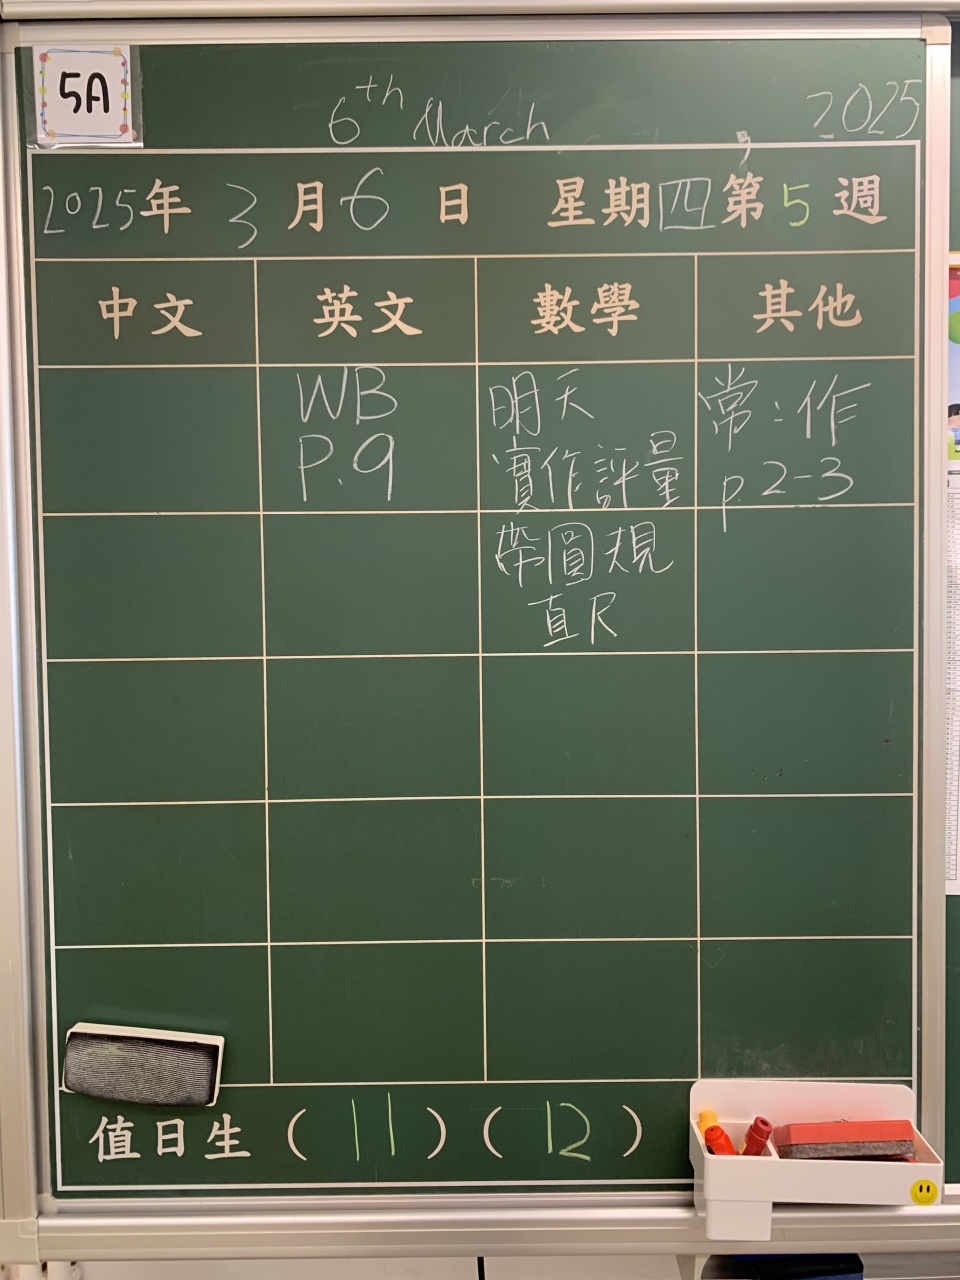 5A
6th March 2025
2025年3月6日 星期四第5週
中文 英文 數學 其他
WB
P.9
明天
實作評量
帶圓規
直尺
常:作
p.2-3
值日生(11)(12)